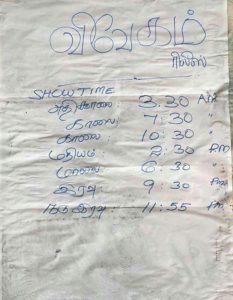 விவேகம்
ரிலீஸ்
SHOW TIME
அதிகாலை : 3.30 AM
காலை : 7:30 "
காலை : 10:30 "
மதியம் : 2:30 PM
மாலை : 6:30 "
இரவு : 9:30 PM
நடுஇரவு : 11:55 PM